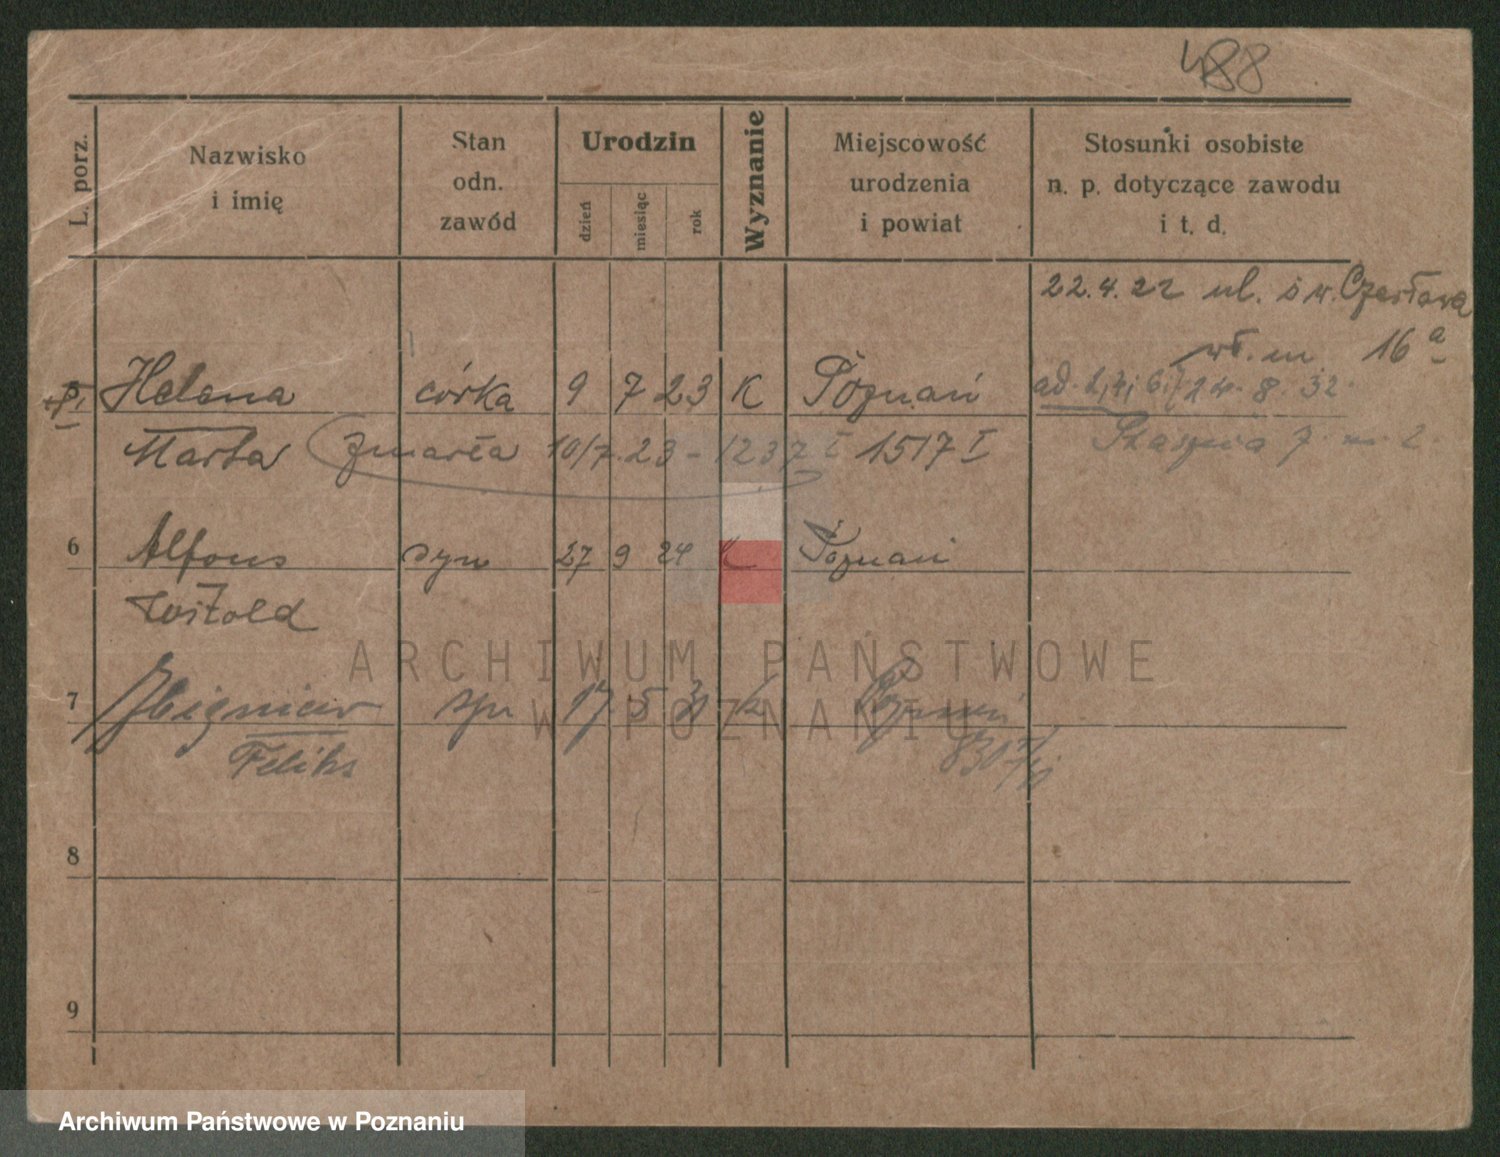 488
L. porz.
Nazwisko
i imię
Stan
odn.
zawód
Urodzin
dzień
miesiąc
rok
Wyznanie
Miejscowość
urodzenia
i powiat
Stosunki osobiste
n. p. dotyczące zawodu
i t. d.
22.4.22 ul. św. Czesława
16a
Helena córka 9 7 23 K Poznań
24. 8. 32.
Marta zmarła 10/7. 23 - 1237 I 1517 I
6 Alfons syn 27 9 24 K Poznań
Witold
ARCHIWUM PAŃSTWOWE
7 Zbigniew syn 17 5 31 K Poznań
W POZNANIU
Feliks
8
9
Archiwum Państwowe w Poznaniu